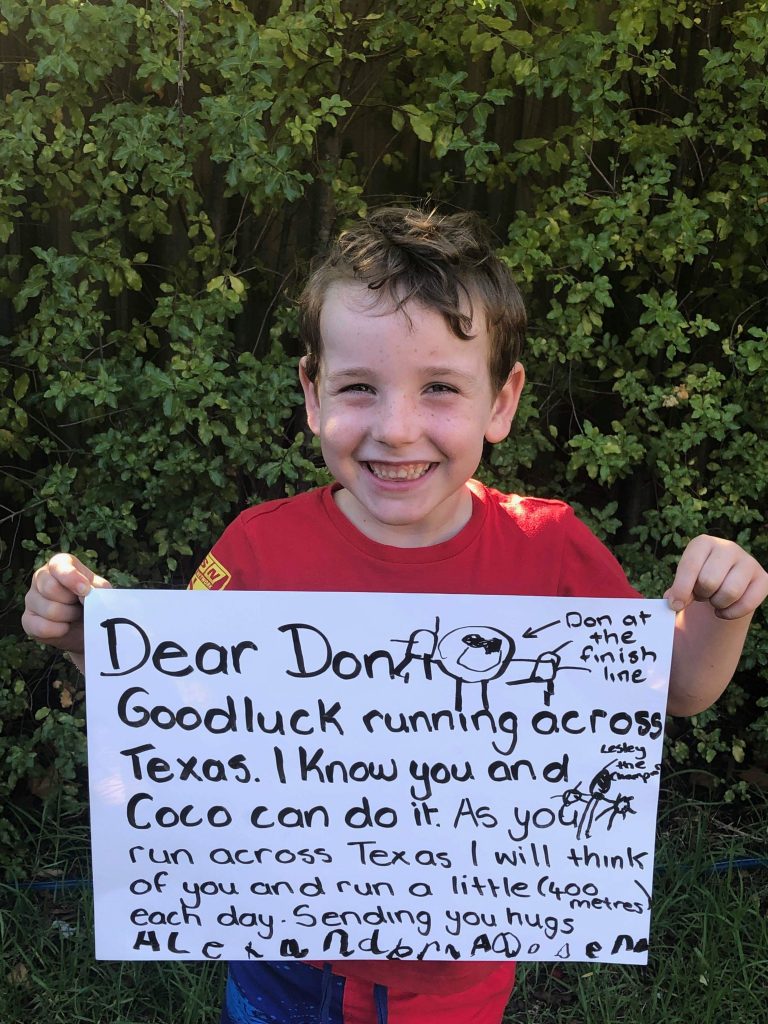 Dear Don,
Don at
the
finish
line
Goodluck running across
Texas. I know you and
Lesley
the
Coco can do it. As you
run across Texas I will think
of you and run a little (400
metres)
each day. Sending you hugs